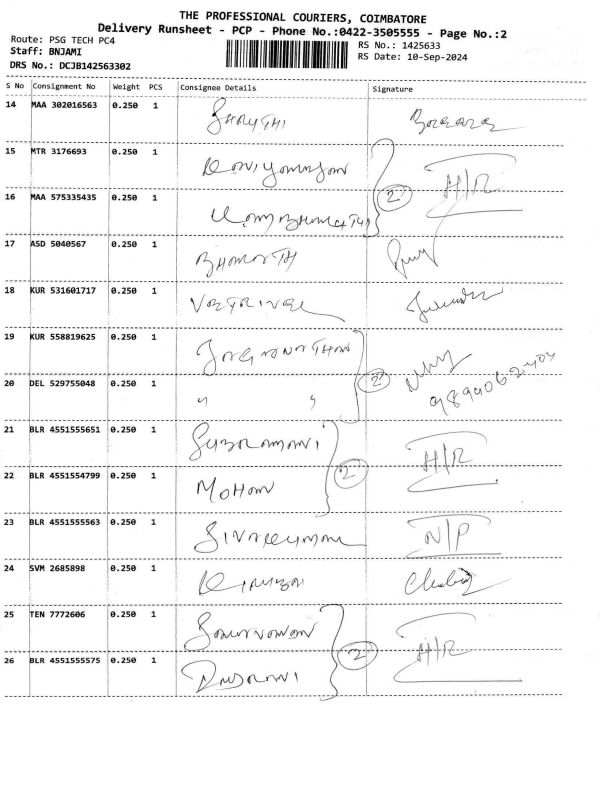 THE PROFESSIONAL COURIERS, COIMBATORE
Delivery Runsheet - PCP - Phone No.:0422-3505555 - Page No.:2
Route: PSG TECH PC4
RS No.: 1425633
Staff: BNJAMI
RS Date: 10-Sep-2024
DRS No.: DCJB142563302
S No Consignment No Weight PCS Consignee Details Signature
14 MAA 302016563 0.250 1 SHRUTHI
15 MTR 3176693 0.250 1
16 MAA 575335435 0.250 1 2 H/R
17 ASD 5040567 0.250 1 BHARATH
18 KUR 531601717 0.250 1 VETRIVEL
19 KUR 558819625 0.250 1
20 DEL 529755048 0.250 1 " " 2
21 BLR 4551555651 0.250 1 SUBRAMANI H/R
22 BLR 4551554799 0.250 1 MOHAN 2
23 BLR 4551555563 0.250 1 SIVAKUMAR N/P
24 SVM 2685898 0.250 1
25 TEN 7772606 0.250 1
26 BLR 4551555575 0.250 1 2 H/R